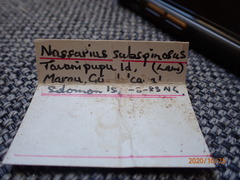 Nassarius subspinosus
Tavanipupu Id, (Lam)
Marau, Gu
Solomon Is, -8-83 NG
2020/10/2